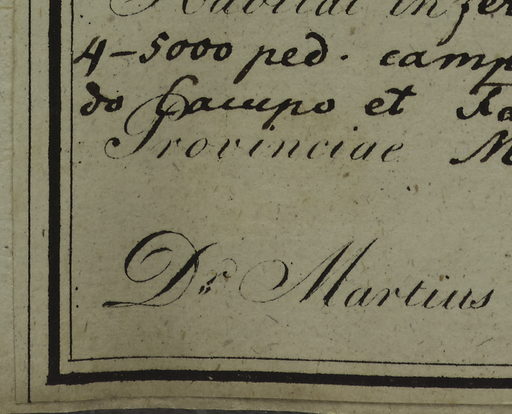 Habitat in
4-5000 ped. camp
do Campo et
Provinciae M
Dr. Martius